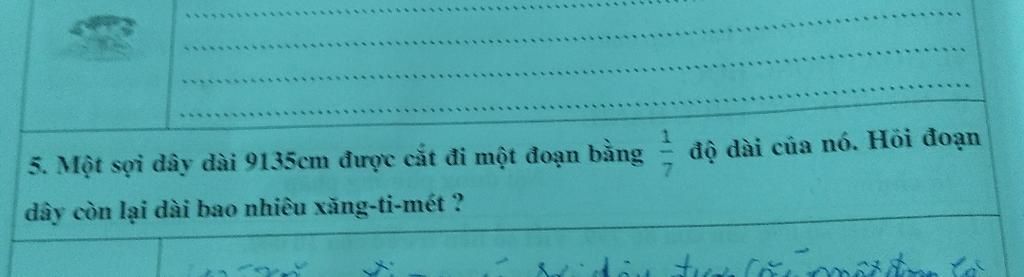 5. Một sợi dây dài 9135cm được cắt đi một đoạn bằng 1/7 độ dài của nó. Hỏi đoạn
dây còn lại dài bao nhiêu xăng-ti-mét ?